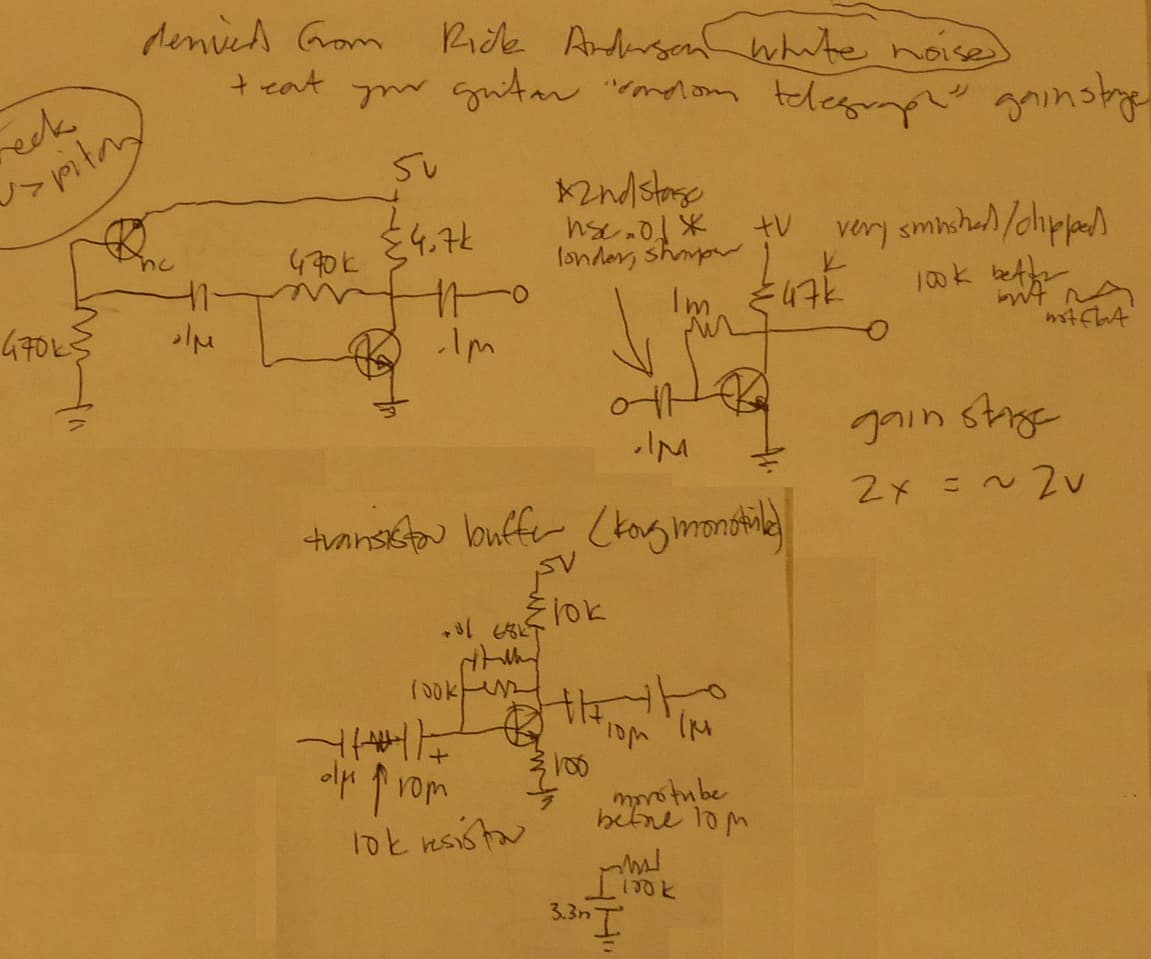 derived from Rick Anderson white noise
treat your guitar "random telegraph" gain stage
5v
4.7k
nc
470k
.1µ
.1µ
470k
*2nd stage
use .01 *
louder, sharper
+V
very smushed/clipped
100k better
but
not flat
1m
47k
.1µ
gain stage
2x = ~ 2v
transistor buffer (korg monotribe)
5V
10k
.01 68k
100k
.1µ
10µ
+
+
10µ
1µ
100
10k resistor
monotribe
before 10µ
100k
3.3n